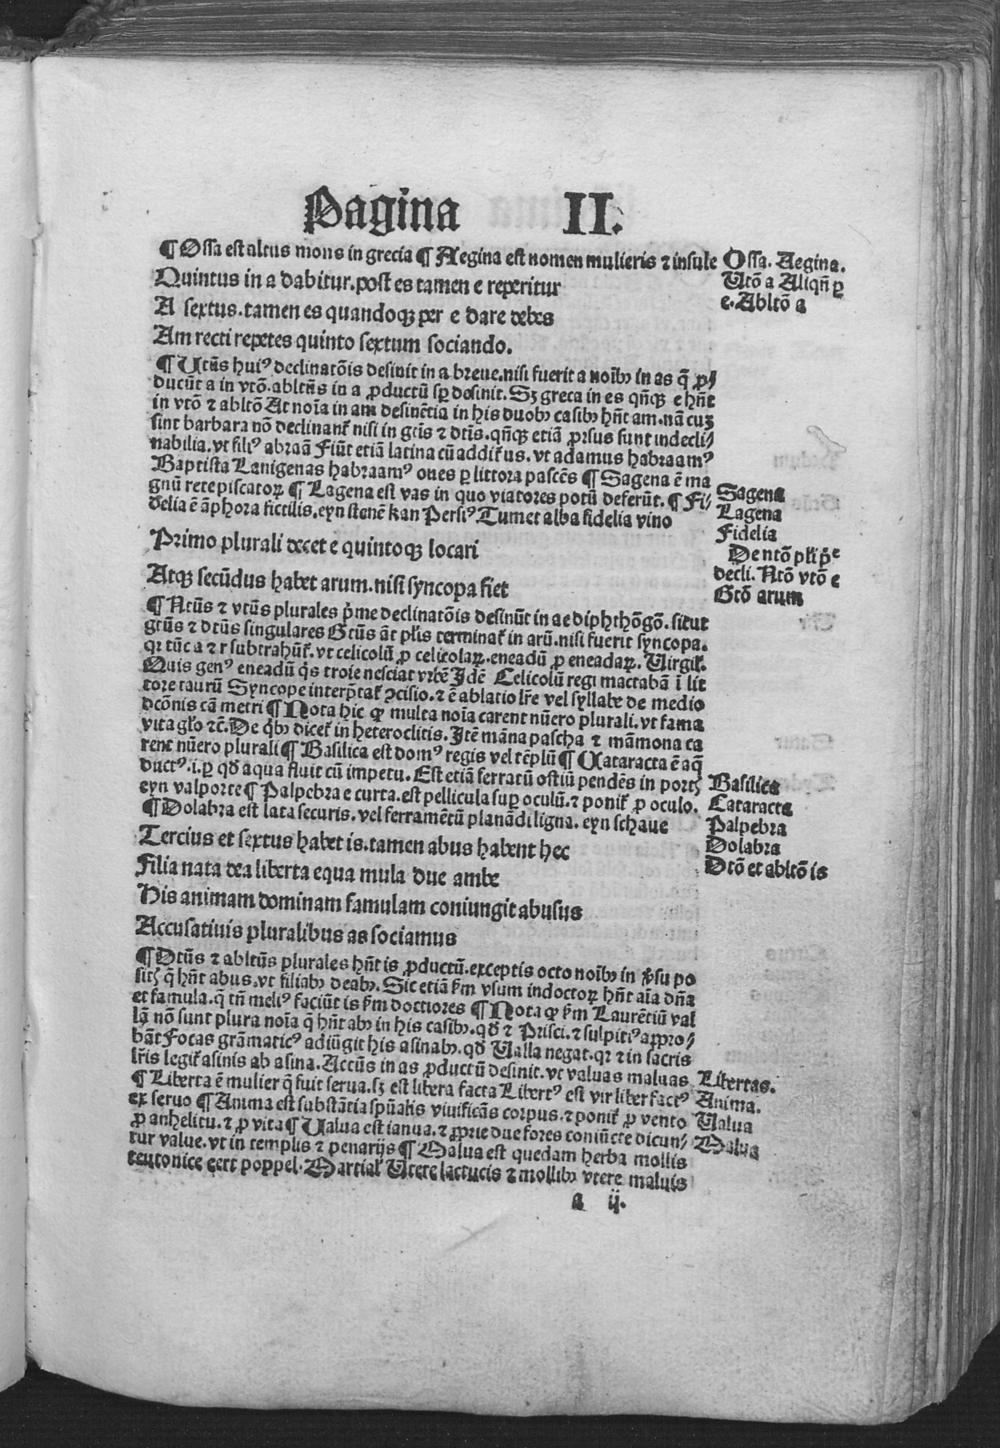 Pagina II.
¶ Ossa est altus mons in grecia ¶ Aegina est nomen mulieris ⁊ insule
Quintus in a dabitur. post es tamen e reperitur
A sextus. tamen es quandoqꝫ per e dare debes
Am recti repetes quinto sextum sociando.
¶ Utūs huiꝰ declinatōis desinit in a breue. nisi fuerit a noībꝫ in as q̄ ꝓ/
ducūt a in vtō. abltūs in a ꝓductū sꝑ desinit. Sꝫ greca in es qn̄qꝫ e hn̄t
in vtō ⁊ abltō At noīa in am desinētia in his duobꝫ casibꝫ hn̄t am. nā cuꝫ
sint barbara nō declinant̄ nisi in gtīs ⁊ dtīs. qn̄qꝫ etiā ꝓrsus sunt indecli/
nabilia. vt filiꝰ abraā Fiūt etiā latina cū addit̄ us. vt adamus habraamꝰ
Baptista Lanigenas habraamꝰ oues ꝑ littora pascēs ¶ Sagena ē ma
gnū rete piscatoꝝ ¶ Lagena est vas in quo viatores potū deferūt. ¶ Fi/
delia ē āphora fictilis. eyn stenē kan Persiꝰ Tumet alba fidelia vino
Primo plurali decet e quintoqꝫ locari
Atqꝫ secūdus habet arum. nisi syncopa fiet
¶ Ntūs ⁊ vtūs plurales p̄me declinatōis desinūt in ae diphthōgō. sicut
gtūs ⁊ dtūs singulares Gtūs āt pl̄is terminat̄ in arū. nisi fuerit syncopa.
qꝛ tūc a ⁊ r subtrahūt̄. vt celicolū ꝓ celicolaꝝ. eneadū ꝓ eneadaꝝ. Uirgil̄.
Quis genꝰ eneadū q̄s troie nesciat vrbē Idē Celicolū regi mactabā ī lit
tore taurū Syncope interp̄tat̄ ꝯcisio. ⁊ ē ablatio lr̄e vel syllabe de medio
dcōnis cā metri ¶ Nota hic ꝙ multa noīa carent nūero plurali. vt fama
vita gl̄o ⁊c̄. De q̄bꝫ dicet̄ in heteroclitis. Itē māna pascha ⁊ māmona ca
rent nūero plurali ¶ Basilica est domꝰ regis vel tēplū ¶ Cataracta ē aq̄
ductꝰ. i. ꝑ qd̄ aqua fluit cū impetu. Est etiā serratū ostiū pendēs in portꝭ
eyn valporte ¶ Palpebra e curta. est pellicula suꝑ oculū. ⁊ ponit̄ ꝓ oculo.
¶ Dolabra est lata securis. vel ferramētū planādi ligna. eyn schaue
Tercius et sextus habet is. tamen abus habent hec
Filia nata dea liberta equa mula due ambe
His animam dominam famulam coniungit abusus
Accusatiuis pluralibus as sociamus
¶ Dtūs ⁊ abltūs plurales hn̄t is ꝓductū. exceptis octo noībꝫ in v̄su po
sitꝭ q̄ hn̄t abus. vt filiabꝫ deabꝫ. Sic etiā ẜm vsum indoctoꝝ hn̄t aīa dn̄a
et famula. q̄ tn̄ meliꝰ faciūt is ẜm doctiores ¶ Nota ꝙ ẜm Laurētiū val
lā nō sunt plura noīa q̄ hn̄t abꝫ in his casibꝫ. qd̄ ⁊ Prisci. ⁊ sulpitiꝰ aꝓpro/
bāt Focas grāmaticꝰ adiūgit his asinabꝫ. qd̄ Ualla negat. qꝛ ⁊ in sacris
lr̄is legit̄ asinis ab asina. Accūs in as ꝓductū desinit. vt valuas maluas
¶ Liberta ē mulier q̄ fuit serua. sꝫ est libera facta Libertꝰ est vir liber factꝰ
ex seruo ¶ Anima est substātia spūalis viuificās corpus. ⁊ ponit̄ ꝓ vento
ꝓ anhelitu. ⁊ ꝓ vita ¶ Ualua est ianua. ⁊ ꝓprie due fores coniūcte dicun/
tur value. vt in templis ⁊ penarijs ¶ Malua est quedam herba mollis
teutonice gert poppel. Martial̄ Utere lactucis ⁊ mollibꝫ vtere maluis
a ij.
Ossa. Aegina.
Utō a Aliqn̄ ꝑ
e. Abltō a
Sagena
Lagena
Fidelia
De ntō pl̄i p̄e
decli. Ntō vtō e
Gtō arum
Basilica
Cataracta
Palpebra
Dolabra
Dtō et abltō is
Libertas.
Anima.
Ualua
Malua